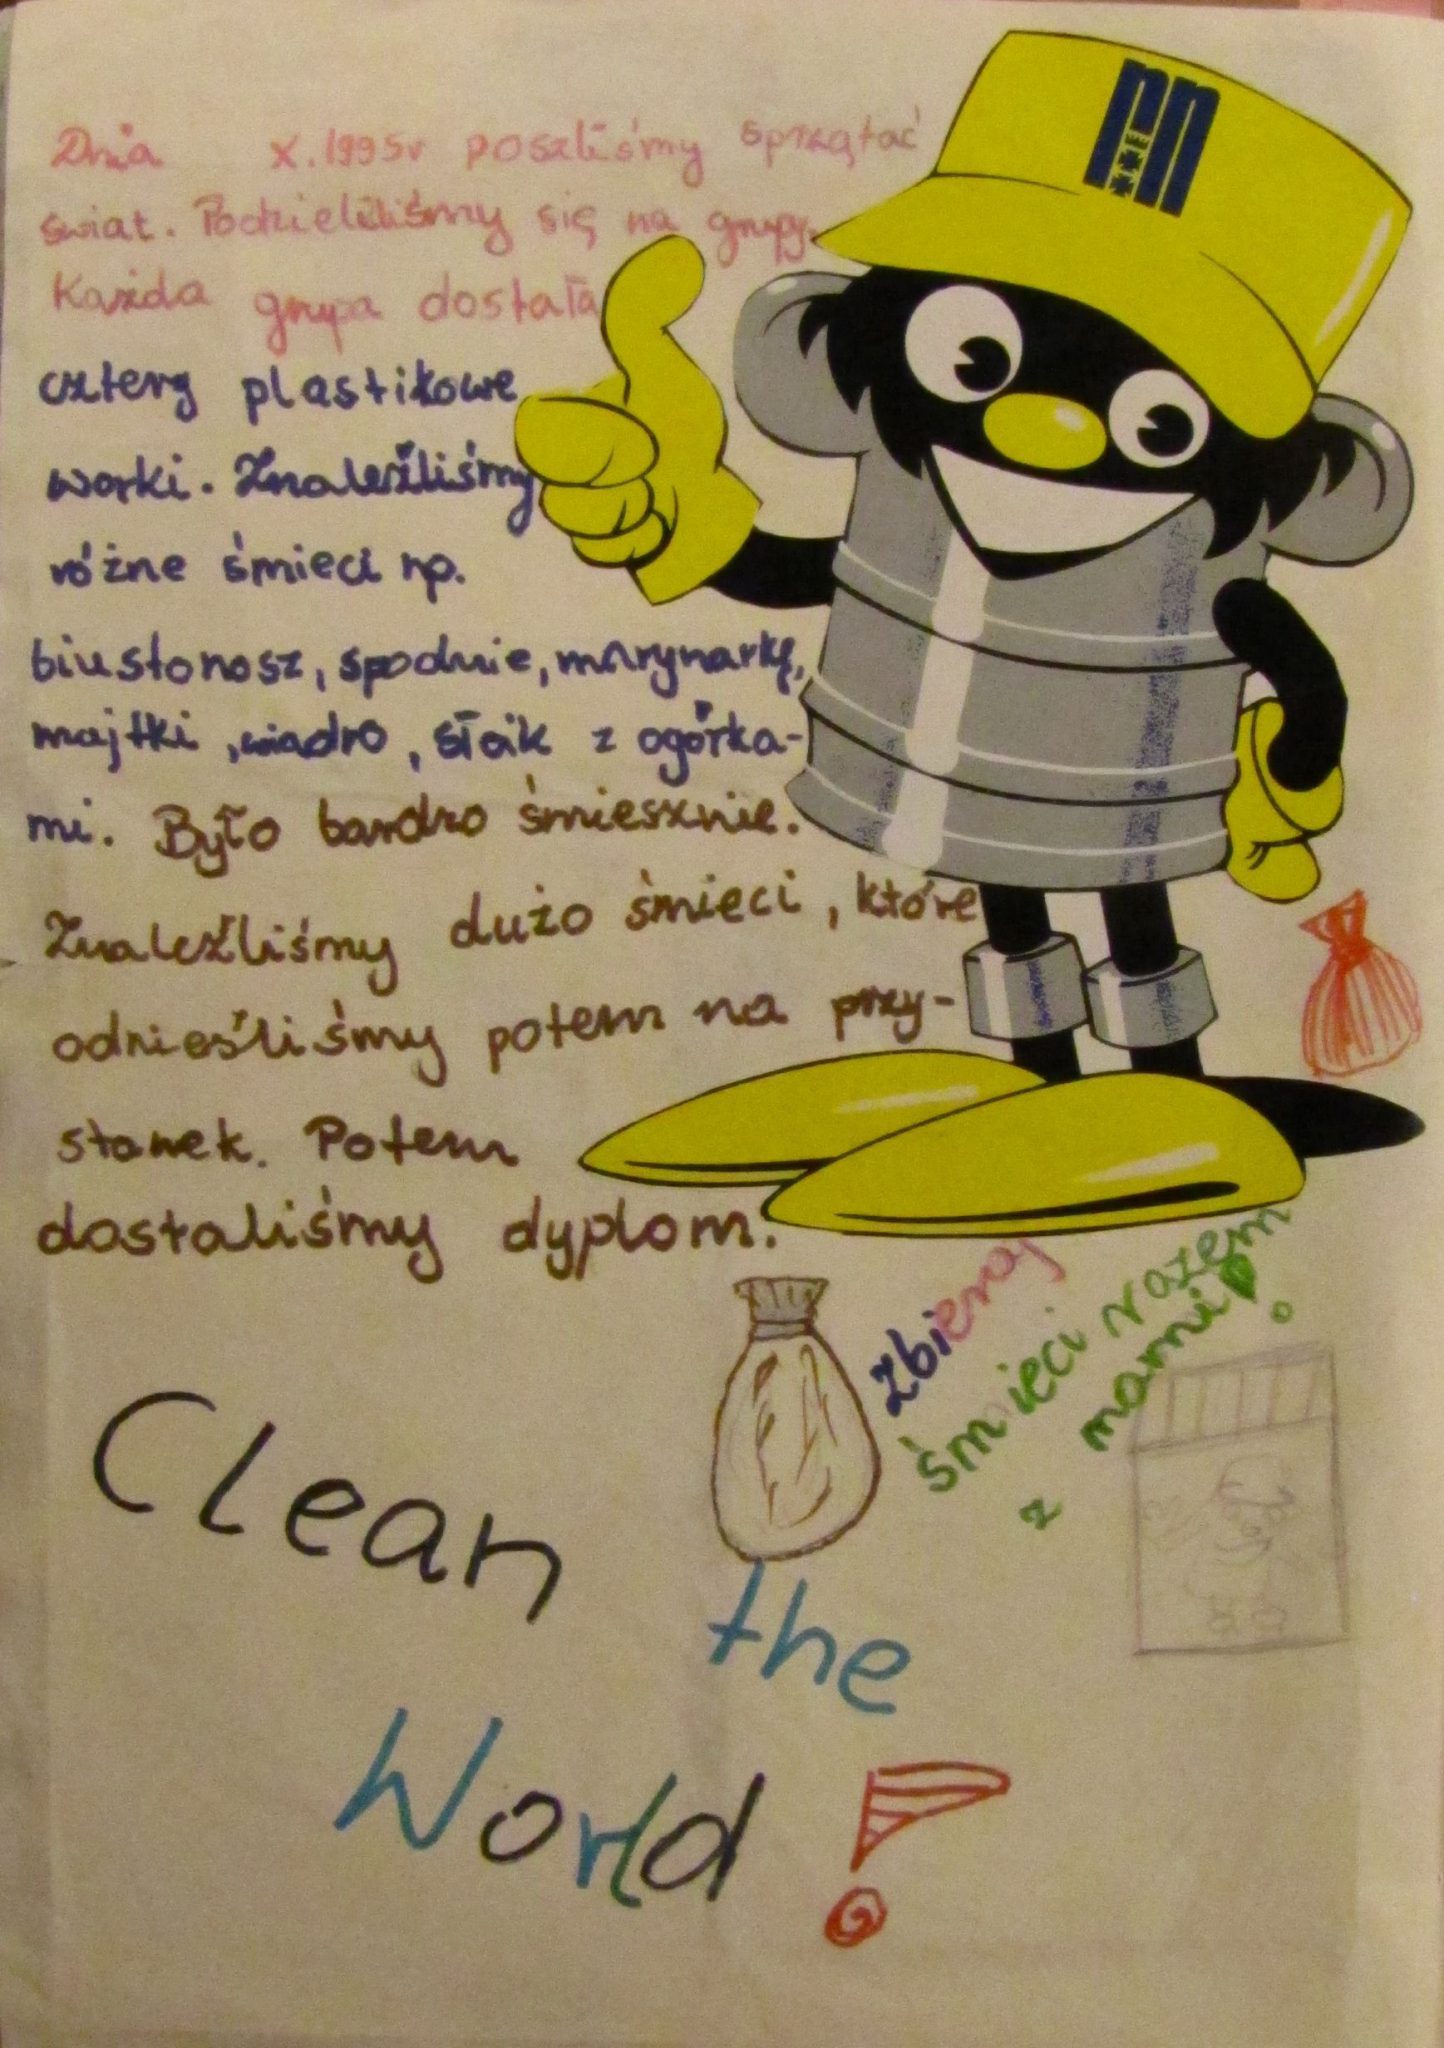 Dnia X.1995r poszliśmy sprzątać
świat. Podzieliliśmy się na grupy.
Każda grupa dostała
cztery plastikowe
worki. Znaleźliśmy
różne śmieci np.
biustonosz, spodnie, marynarkę,
majtki, wiadro, słoik z ogórka-
mi. Było bardzo śmiesznie.
Znaleźliśmy dużo śmieci, które
odnieśliśmy potem na przy-
stanek. Potem
dostaliśmy dyplom.
Zbieraj
śmieci razem
z mami!
Clean
the
World!